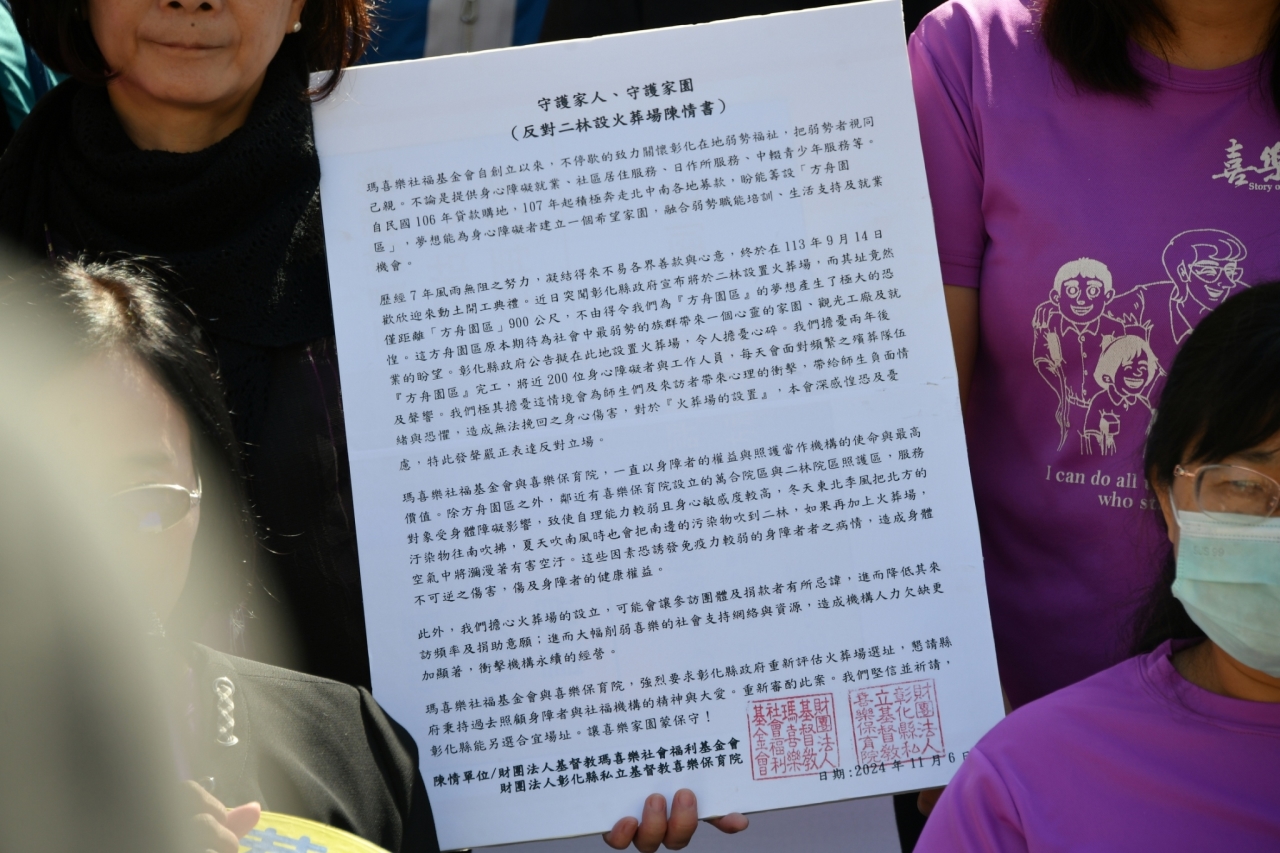 守護家人、守護家園
（反對二林設火葬場陳情書）
瑪喜樂社福基金會自創立以來，不停歇的致力關懷彰化在地弱勢福祉，把弱勢者視同
己親。不論是提供身心障礙就業、社區居住服務、日作所服務、中輟青少年服務等。
自民國106年貸款購地，107年起積極奔走北中南各地募款，盼能籌設「方舟園
區」，夢想能為身心障礙者建立一個希望家園，融合弱勢職能培訓、生活支持及就業
機會。
歷經7年風雨無阻之努力，凝結得來不易各界善款與心意，終於在113年9月14日
歡欣迎來動土開工典禮。近日突聞彰化縣政府宣布將於二林設置火葬場，而其址竟然
僅距離「方舟園區」900公尺，不由得令我們為『方舟園區』的夢想產生了極大的恐
惶。這方舟園區原本期待為社會中最弱勢的族群帶來一個心靈的家園、觀光工廠及就
業的盼望。彰化縣政府公告擬在此地設置火葬場，令人擔憂心碎。我們擔憂兩年後
『方舟園區』完工，將近200位身心障礙者與工作人員，每天會面對頻繁之殯葬隊伍
及聲響。我們極其擔憂這情境會為師生們及來訪者帶來心理的衝擊，帶給師生負面情
緒與恐懼，造成無法挽回之身心傷害，對於『火葬場的設置』，本會深感惶恐及憂
慮，特此發聲嚴正表達反對立場。
瑪喜樂社福基金會與喜樂保育院，一直以身障者的權益與照護當作機構的使命與最高
價值。除方舟園區之外，鄰近有喜樂保育院設立的萬合院區與二林院區照護區，服務
對象受身體障礙影響，致使自理能力較弱且身心敏感度較高，冬天東北季風把北方的
汙染物往南吹拂，夏天吹南風時也會把南邊的污染物吹到二林，如果再加上火葬場，
空氣中將瀰漫著有害空汙。這些因素恐誘發免疫力較弱的身障者者之病情，造成身體
不可逆之傷害，傷及身障者的健康權益。
此外，我們擔心火葬場的設立，可能會讓參訪團體及捐款者有所忌諱，進而降低其來
訪頻率及捐助意願；進而大幅削弱喜樂的社會支持網絡與資源，造成機構人力欠缺更
加顯著，衝擊機構永續的經營。
瑪喜樂社福基金會與喜樂保育院，強烈要求彰化縣政府重新評估火葬場選址，懇請縣
府秉持過去照顧身障者與社福機構的精神與大愛。重新審酌此案。我們堅信並祈請，
彰化縣能另選合宜場址。讓喜樂家園蒙保守！
陳情單位/財團法人基督教瑪喜樂社會福利基金會
財團法人彰化縣私立基督教喜樂保育院
財團法人基督教瑪喜樂社會福利基金會
財團法人彰化縣私立基督教喜樂保育院
日期:2024年11月6日
喜樂
Story of
I can do all
who st